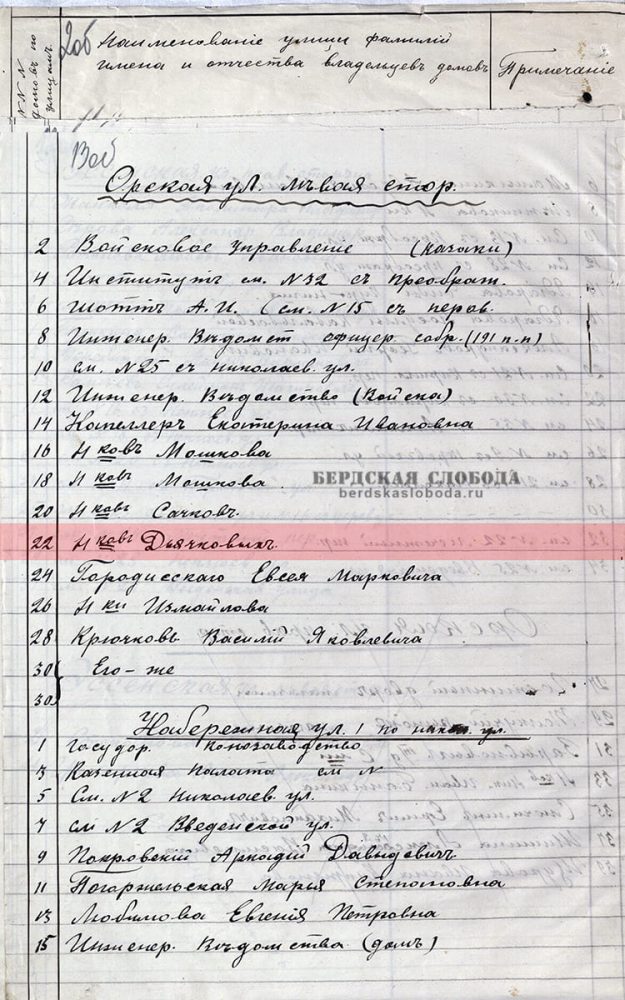 № № №
домовъ по
улицамъ.
2об
Наименованіе улицы фамиліи
имена и отчества владельцевъ домовъ
Примечаніе
13об
Орская ул. лѣвая стор.
2 Войсковое Управленіе (казаки)
4 Институтъ см. №32 съ преображ.
6 Шоттъ А.И. (см. №15 съ перов.
8 Инженер. Вѣдомст офицер. собр. (191 п.п)
10 см. №25 съ николаев. ул.
12 Инженер. Вѣдомство (Войска)
14 Капеллеръ Екатерина Ивановна
16 Н ковъ Мошкова
18 Н ковъ Мошкова
БЕРДСКАЯ СЛОБОДА
berdskasloboda.ru
20 Н ковъ Сачковъ
22 Н ковъ Дьячковыхъ
24 Городисскаго Евсея Марковича
26 Н ки Измайлова
28 Крючковъ Василій Яковлевича
30 Его-же
30
Набережная ул. по ул.
1 Госудор. конозаводство
3 Казенная палата см №
5 См. №2 Николаев. ул.
7 см №2 Введенской ул.
9 Покровскій Аркадій Давидовичъ
11 Погоржельская Марья Степановна
13 Любимова Евгенія Петровна
15 Инженер. Вѣдомства (домъ)